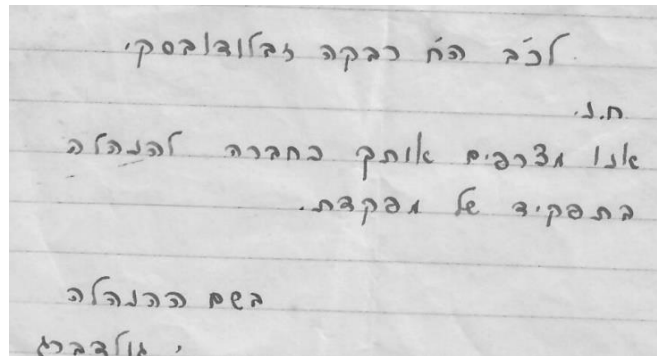 לכ"ב הח' רבקה זבלודובסקי.
ח.נ.
אנו מצרפים אותך כחברה להנהלה
בתפקיד של מפקדת.
בשם ההנהלה
י. גולדברג